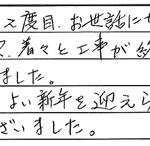 2度目、お世話に
着々と工事が
ました。
よい新年を迎えら
ざいました。